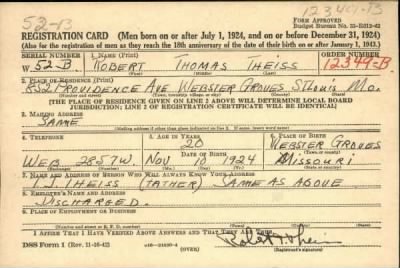 52-B
12349-B
REGISTRATION CARD (Men born on or after July 1, 1924, and on or before December 31, 1924)
FORM APPROVED
(Also for the registration of men as they reach the 18th anniversary of the date of their birth on or after January 1, 1943.)
SERIAL NUMBER 1. NAME (Print) ORDER NUMBER
W 52-B ROBERT THOMAS THEISS 12349-B
(First) (Middle) (Last)
2. PLACE OF RESIDENCE (Print)
852 PROVIDENCE AVE WEBSTER GROVES ST LOUIS MO.
(Number and street) (Town, township, village, or city) (County) (State)
[THE PLACE OF RESIDENCE GIVEN ON LINE 2 ABOVE WILL DETERMINE LOCAL BOARD
JURISDICTION; LINE 2 OF REGISTRATION CERTIFICATE WILL BE IDENTICAL]
3. MAILING ADDRESS
SAME
4. TELEPHONE 5. AGE IN YEARS 6. PLACE OF BIRTH
20 WEBSTER GROVES
DATE OF BIRTH
WEB. 2857W. NOV. 10 1924 MISSOURI
7. NAME AND ADDRESS OF PERSON WHO WILL ALWAYS KNOW YOUR ADDRESS
THEISS (FATHER) SAME AS ABOVE
8. EMPLOYER'S NAME AND ADDRESS
DISCHARGED.
9. PLACE OF EMPLOYMENT OR BUSINESS
(Number and street or R. F. D. number) (Town) (County) (State)
I AFFIRM THAT I HAVE VERIFIED ABOVE ANSWERS AND THAT THEY ARE TRUE.
DSS Form 1 (Rev. 11-16-42) (OVER) Robert T. Theiss
(Registrant's signature)